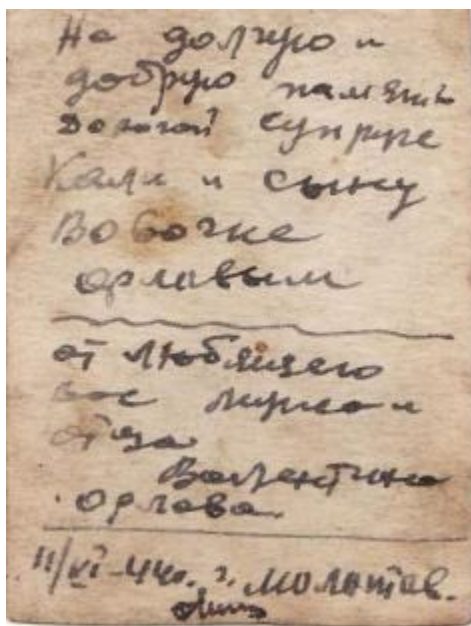 На долгую и
добрую память
дорогой супруге
Кали и сыну
Вовочке
орловым
от любящего
вас мужа и
отца
Валентина
орлова.
11/VI-44г. г. Молотов.